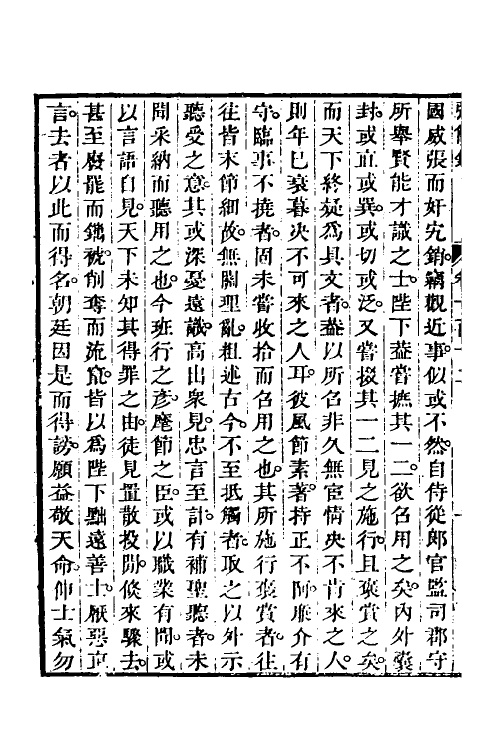 國威張而奸宄銷竊觀近事似或不然自侍從郎官監司郡守
所舉賢能才識之士陛下葢嘗撫其一二欲召用之矣內外囊
封或直或異或切或泛又嘗掇其一二見之施行且褒賞之矣
而天下終疑爲具文者葢以所召非久無宦情决不肯來之人
則年已衰暮决不可來之人耳彼風節素著持正不阿廉介有
守臨事不撓者固未嘗收拾而召用之也其所施行褒賞者往
往皆末節細故無關理亂粗述古今不至抵觸者取之以外示
聽受之意其或深憂遠識高出衆見忠言至計有補聖聽者未
聞采納而聽用之也今班行之彦麾節之臣或以職業有聞或
以言語自見天下未知其得罪之由徒見置散投閒倐來驟去
甚至廢罷而鐫褫削奪而流竄皆以爲陛下黜遠善士厭惡直
言去者以此而得名朝廷因是而得謗願益敬天命伸士氣勿